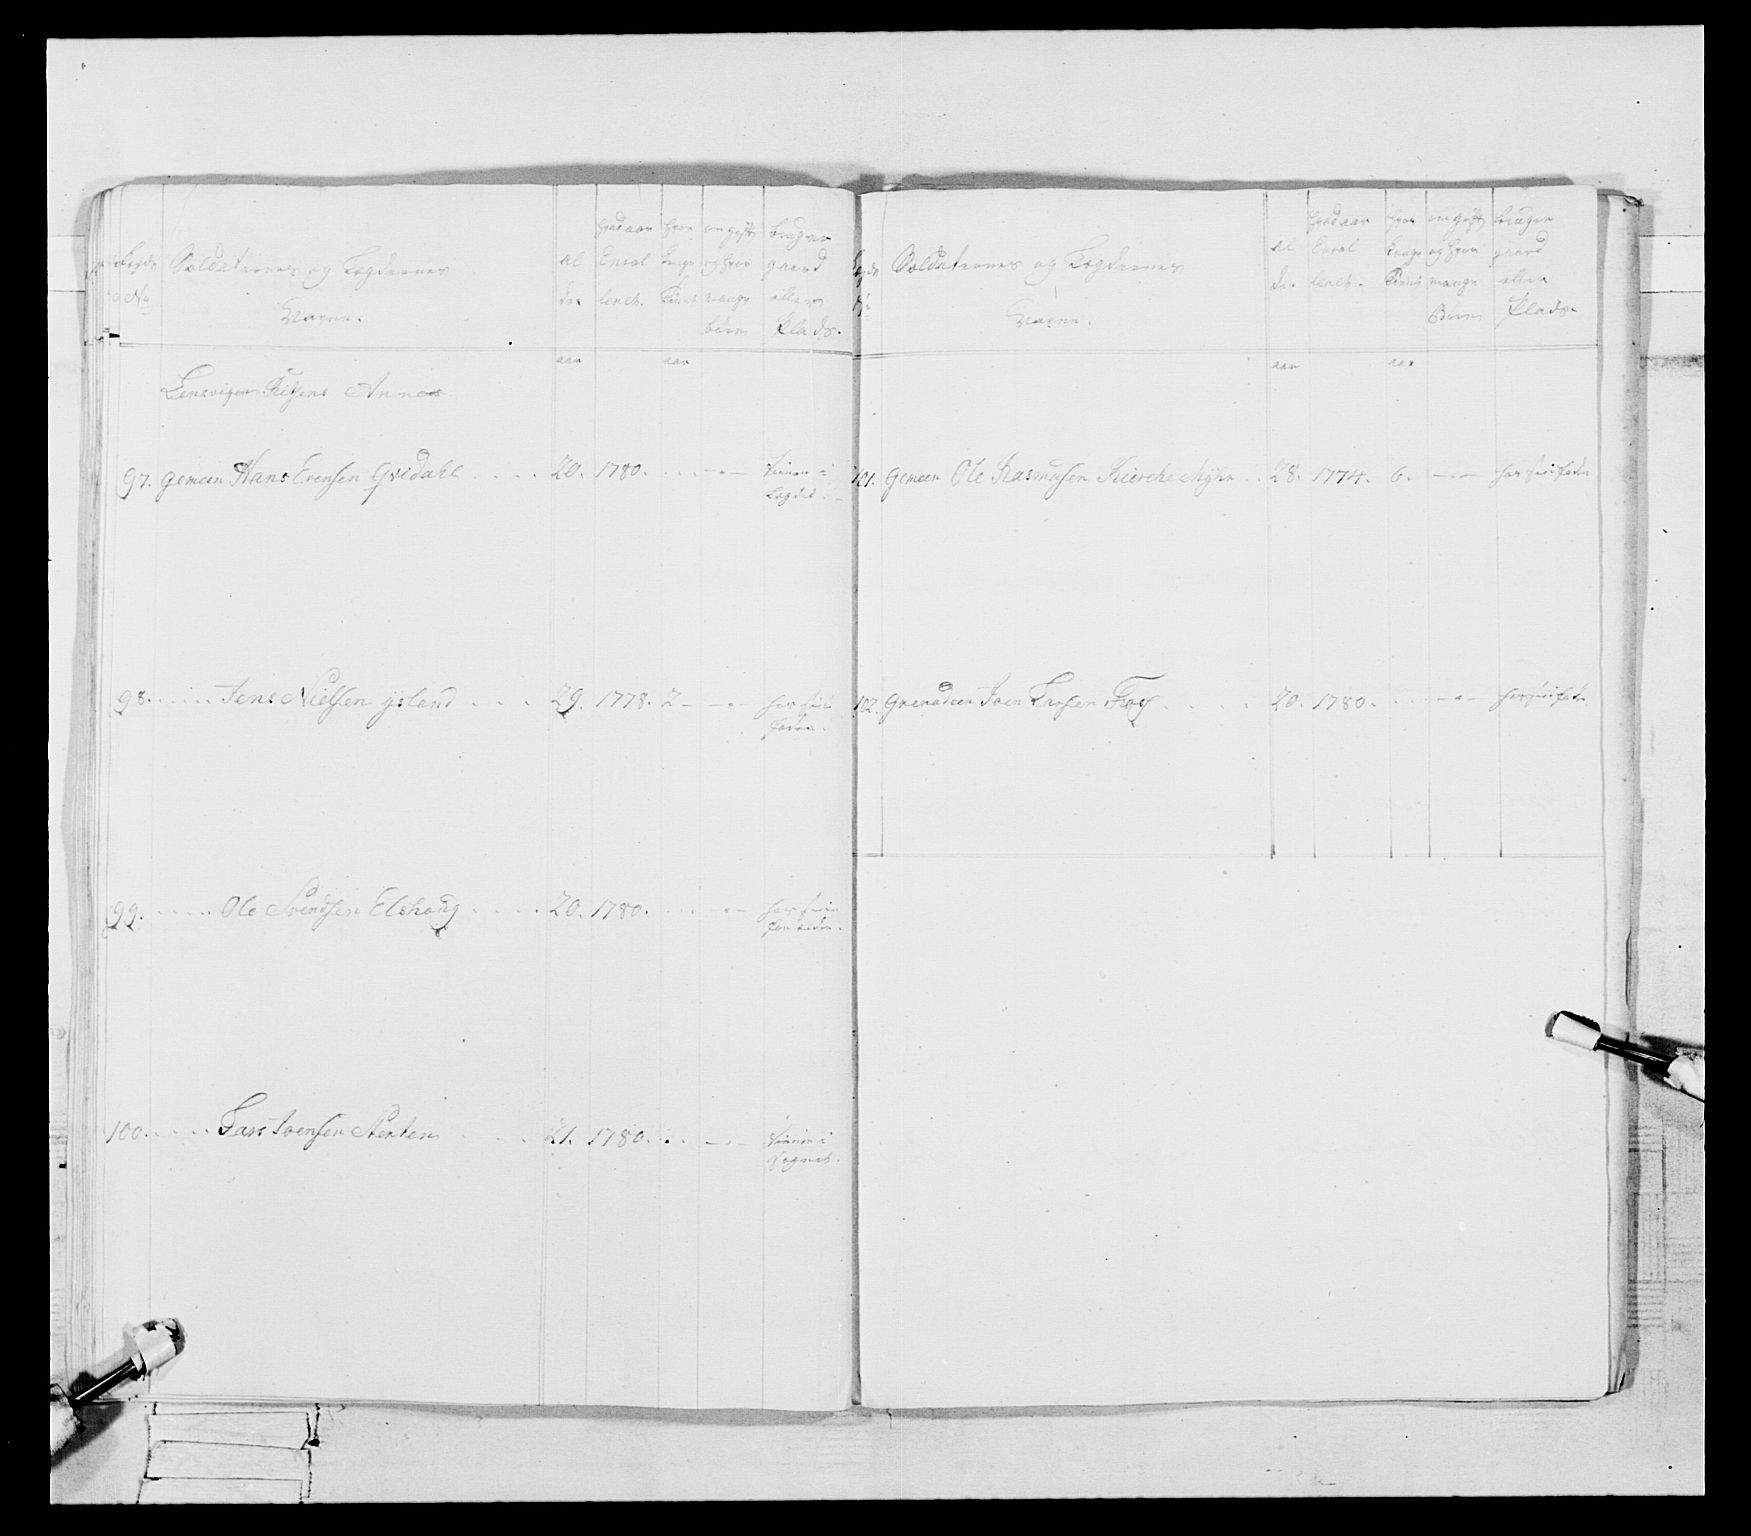 Soldaternes og Lægdernes
Navne.
Al
der
hvad aar
Enrol
leret.
hvor
længe
tient
om gift
og hvor
mange
børn
bruger
gaard
eller
Plads.
aar
aar
Lensvigens Annex
97. Gemeen Hans Evensen Gvidahl 20. 1780. tiener i
Lægdet
98. Jens Nielsen ysland 29. 1778. 2 hos sin
fader.
99. Ole Svendsen Elshaug 20. 1780. hos sine
100. Lars Joensen Stenken 21. 1780. tiener i
Sognet.
Soldaternes og Lægdernes
Navne.
Al
der
hvad aar
Enrol
leret.
hvor
længe
tient
om gift
og hvor
mange
Børn
bruger
gaard
eller
Plads.
aar
aar
101. Gemeen Ole Rasmusen Kiirche Myhr 28. 1774. 6. hos sin fader
102. Grenadeer Joen Larsen Foss 20. 1780. hos sin fader